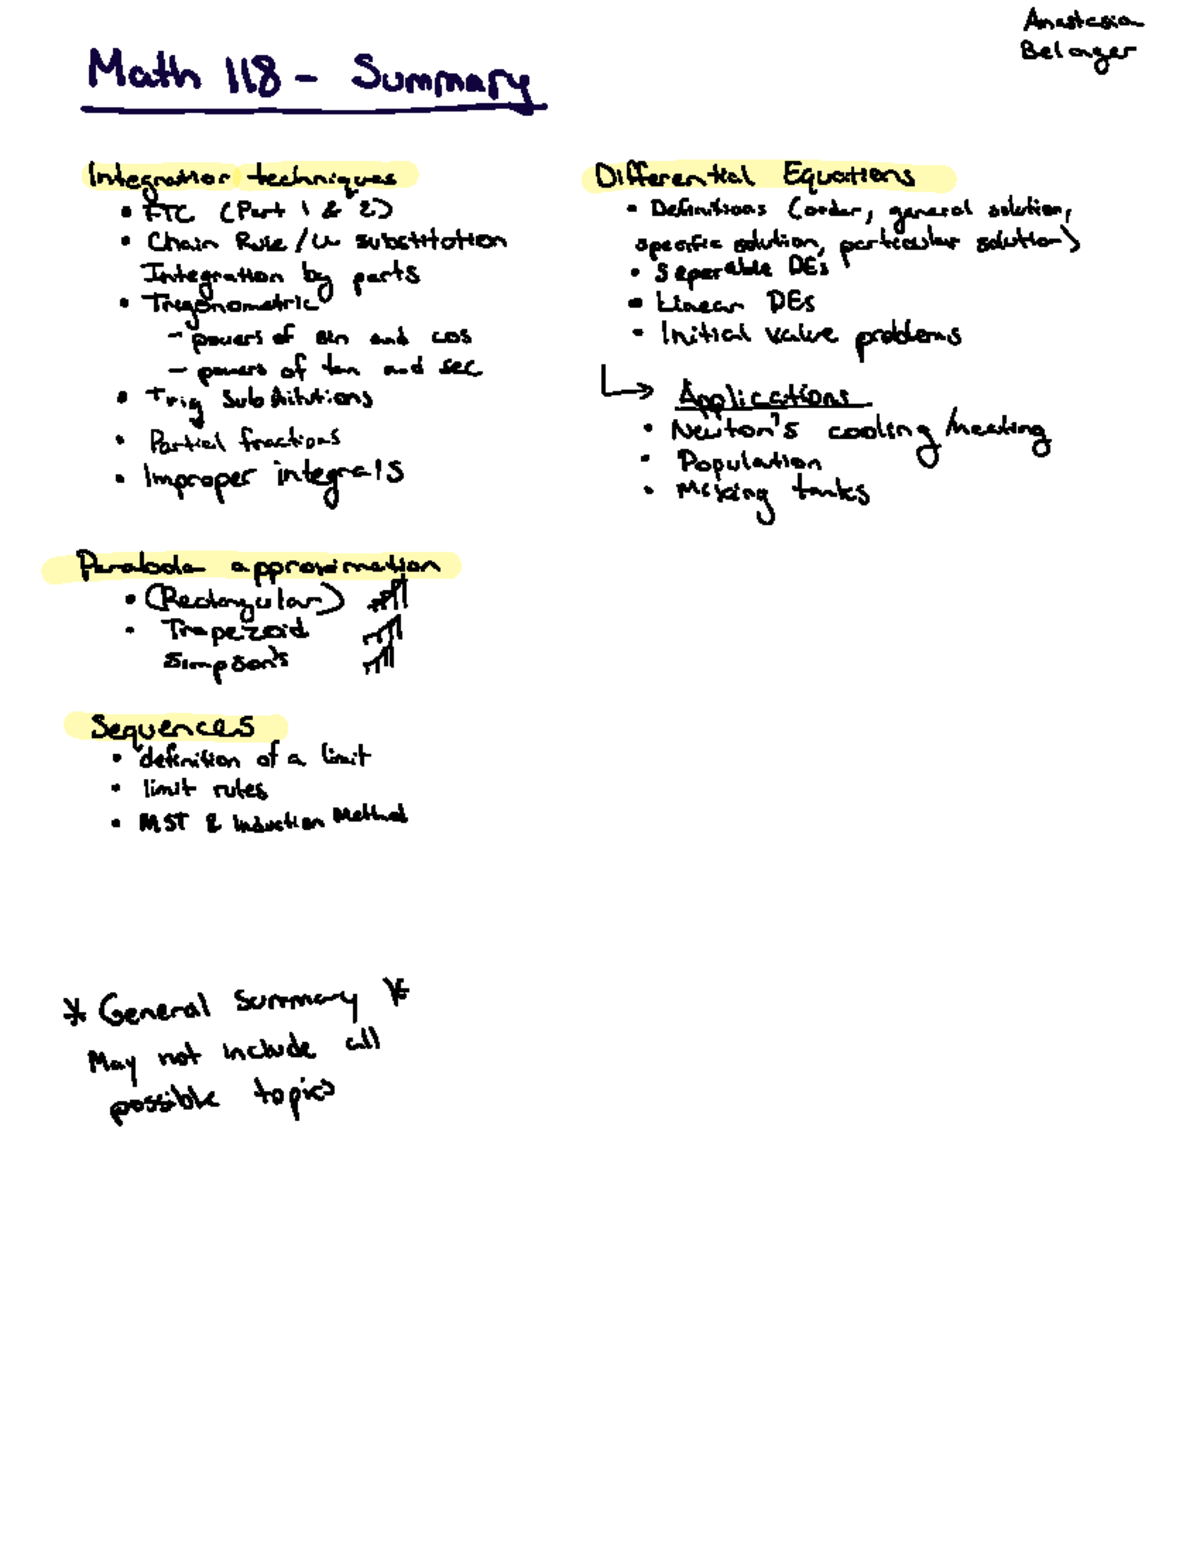 Anastasia
Belanger
Math 118 - Summary
Integration techniques
• FTC (Part 1 & 2)
• Chain Rule / u substitution
Integration by parts
• Trigonometric
- powers of sin and cos
- powers of tan and sec
• Trig Substitutions
• Partial fractions
• Improper integrals
Parabola approximation
• (Rectangular)
• Trapezoid
Simpson's
Sequences
• definition of a limit
• limit rules
• MST & Induction Method
* General Summary *
May not include all
possible topics
Differential Equations
• Definitions (order, general solution,
specific solution, particular solution)
• Seperable DEs
• Linear DEs
• Initial value problems
↳ Applications
• Newton's cooling/heating
• Population
• Mixing tanks